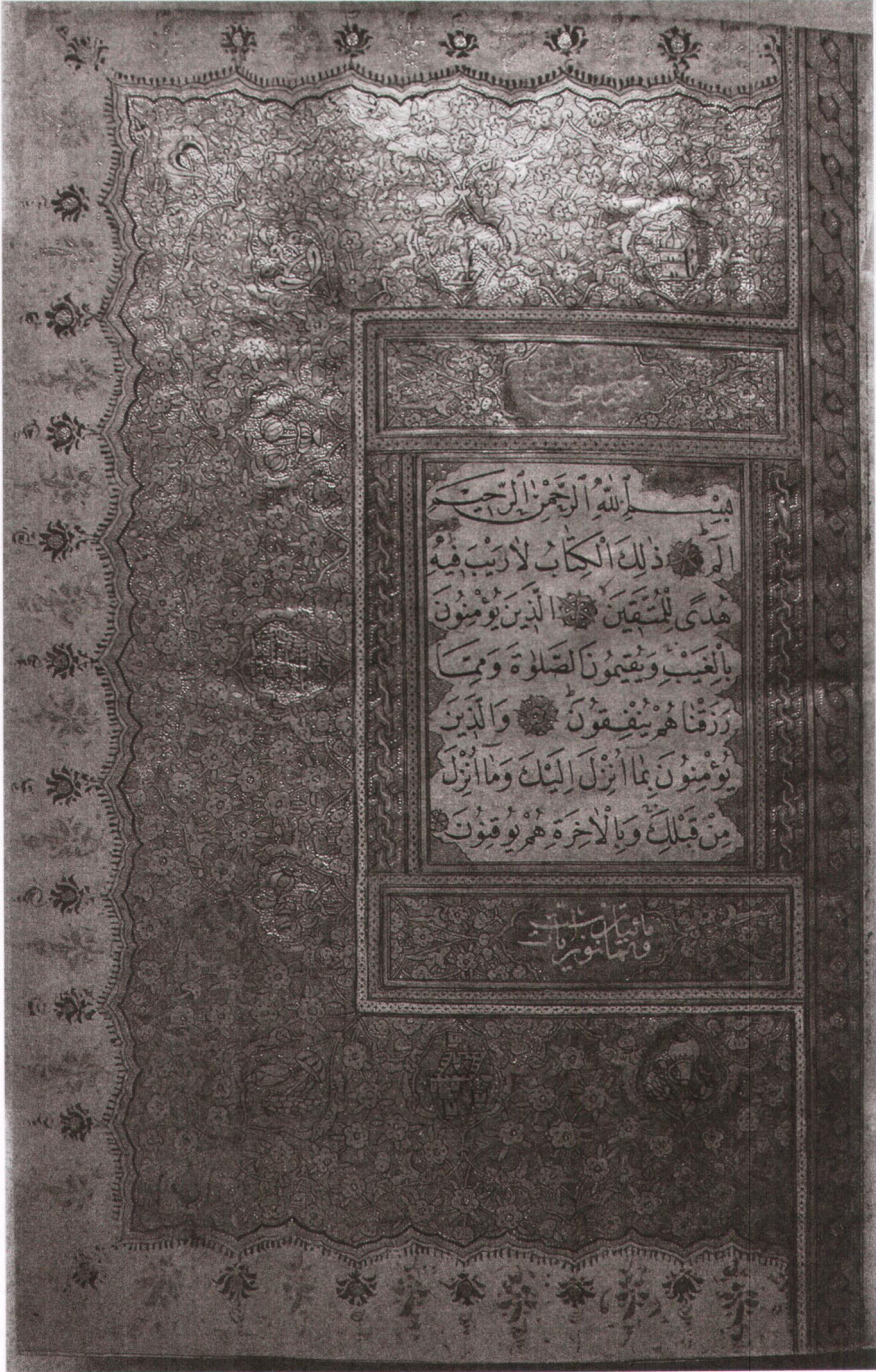 بِسْمِ اللّٰهِ الرَّحْمٰنِ الرَّحِيمِ
الٓمٓ ذٰلِكَ الْكِتَابُ لَا رَيْبَ فِيهِ
هُدًى لِلْمُتَّقِينَ الَّذِينَ يُؤْمِنُونَ
بِالْغَيْبِ وَيُقِيمُونَ الصَّلٰوةَ وَمِمَّا
رَزَقْنَاهُمْ يُنْفِقُونَ وَالَّذِينَ
يُؤْمِنُونَ بِمَٓا اُنْزِلَ اِلَيْكَ وَمَٓا اُنْزِلَ
مِنْ قَبْلِكَ وَبِالْاٰخِرَةِ هُمْ يُوقِنُونَ